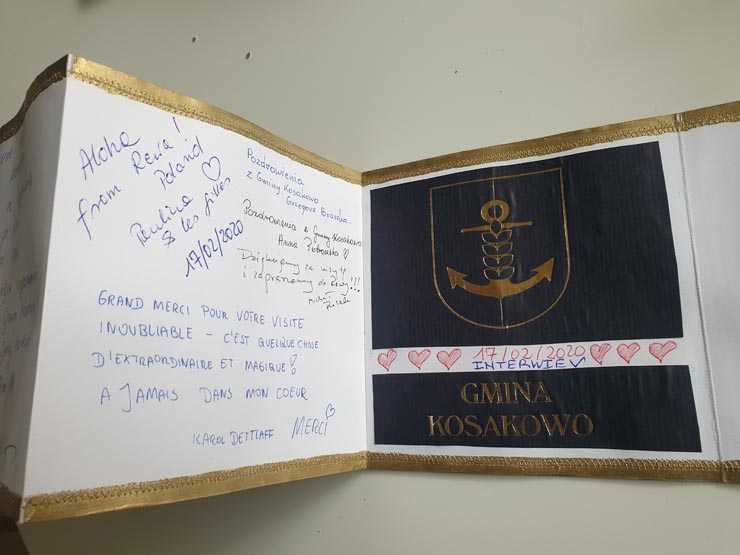 Aloha
from Rewa!
Poland
Paulina
& les filles
17/02/2020
Pozdrowienia
z Gminy Kosakowo
Grzegorz
Pozdrowienia z Gminy Kosakowo
Anna
Dziękujemy za wizytę
i zapraszamy do Rewy!!!
GRAND MERCI POUR VOTRE VISITE
INOUBLIABLE – C'EST QUELQUE CHOSE
D'EXTRAORDINAIRE ET MAGIQUE!
A JAMAIS DANS MON COEUR
KAROL DETTLAFF MERCI
17/02/2020
INTERWIEV
GMINA
KOSAKOWO